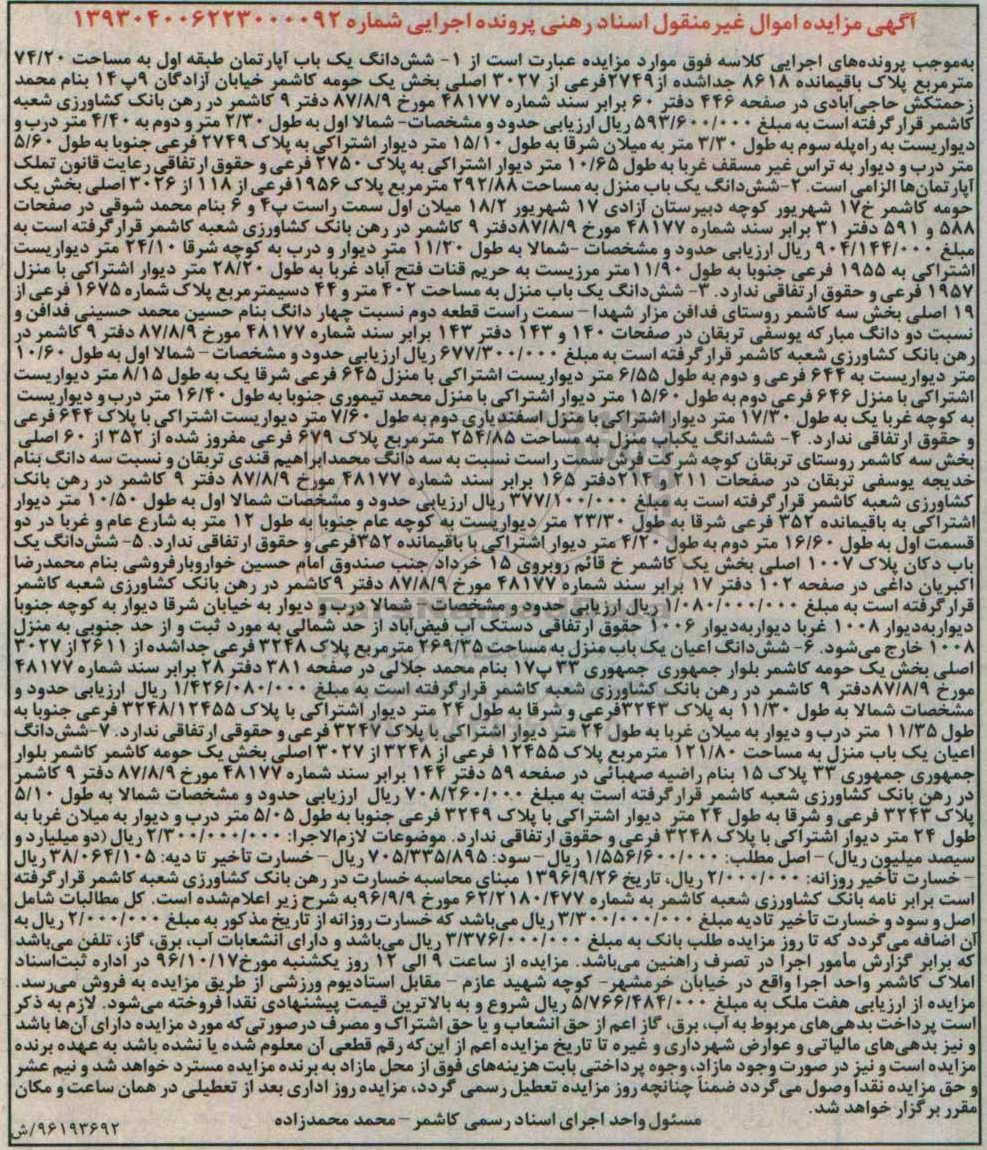 آگهی مزایده اموال غیرمنقول اسناد رهنی پرونده اجرایی شماره ۱۳۹۳۰۴۰۰۶۲۲۳۰۰۰۰۹۲
به‌موجب پرونده‌های اجرایی کلاسه فوق موارد مزایده عبارت است از ۱- شش‌دانگ یک باب آپارتمان طبقه اول به مساحت ۷۴/۲۰
مترمربع پلاک باقیمانده ۸۶۱۸ جداشده از۲۷۴۹فرعی از ۳۰۲۷ اصلی بخش یک حومه کاشمر خیابان آزادگان ۹پ ۱۴ بنام محمد
زحمتکش حاجی‌آبادی در صفحه ۴۴۶ دفتر ۶۰ برابر سند شماره ۴۸۱۷۷ مورخ ۸۷/۸/۹ دفتر ۹ کاشمر در رهن بانک کشاورزی شعبه
کاشمر قرارگرفته است به مبلغ ۵۹۳/۶۰۰/۰۰۰ ریال ارزیابی حدود و مشخصات- شمالا اول به طول ۲/۳۰ متر و دوم به ۴/۴۰ متر درب و
دیواریست به راه‌پله سوم به طول ۳/۳۰ متر به میلان شرقا به طول ۱۵/۱۰ متر دیوار اشتراکی به پلاک ۲۷۴۹ فرعی جنوبا به طول ۵/۶۰
متر درب و دیوار به تراس غیر مسقف غربا به طول ۱۰/۶۵ متر دیوار اشتراکی به پلاک ۲۷۵۰ فرعی و حقوق ارتفاقی رعایت قانون تملک
آپارتمان‌ها الزامی است. ۲-شش‌دانگ یک باب منزل به مساحت ۲۹۲/۸۸ مترمربع پلاک ۱۹۵۶فرعی از ۱۱۸ از ۳۰۲۶ اصلی بخش یک
حومه کاشمر خ۱۷ شهریور کوچه دبیرستان آزادی ۱۷ شهریور ۱۸/۲ میلان اول سمت راست پ۴ و ۶ بنام محمد شوقی در صفحات
۵۸۸ و ۵۹۱ دفتر ۳۱ برابر سند شماره ۴۸۱۷۷ مورخ ۸۷/۸/۹دفتر ۹ کاشمر در رهن بانک کشاورزی شعبه کاشمر قرارگرفته است به
مبلغ ۹۰۴/۱۴۴/۰۰۰ ریال ارزیابی حدود و مشخصات -شمالا به طول ۱۱/۲۰ متر دیوار و درب به کوچه شرقا ۲۴/۱۰ متر دیواریست
اشتراکی به ۱۹۵۵ فرعی جنوبا به طول ۱۱/۹۰متر مرزیست به حریم قنات فتح آباد غربا به طول ۲۸/۲۰ متر دیوار اشتراکی با منزل
۱۹۵۷ فرعی و حقوق ارتفاقی ندارد. ۳- شش‌دانگ یک باب منزل به مساحت ۴۰۲ متر و ۴۴ دسیمترمربع پلاک شماره ۱۶۷۵ فرعی از
۱۹ اصلی بخش سه کاشمر روستای فدافن مزار شهدا - سمت راست قطعه دوم نسبت چهار دانگ بنام حسین محمد حسینی فدافن و
نسبت دو دانگ مبارکه یوسفی تربقان در صفحات ۱۴۰ و ۱۴۳ دفتر ۱۴۳ برابر سند شماره ۴۸۱۷۷ مورخ ۸۷/۸/۹ دفتر ۹ کاشمر در
رهن بانک کشاورزی شعبه کاشمر قرارگرفته است به مبلغ ۶۷۷/۳۰۰/۰۰۰ ریال ارزیابی حدود و مشخصات - شمالا اول به طول ۱۰/۶۰
متر دیواریست به ۶۴۴ فرعی و دوم به طول ۶/۵۵ متر دیواریست اشتراکی با منزل ۶۴۵ فرعی شرقا یک به طول ۸/۱۵ متر دیواریست
اشتراکی با منزل ۶۴۶ فرعی دوم به طول ۱۵/۶۰ متر دیوار اشتراکی با منزل محمد تیموری جنوبا به طول ۱۶/۴۰ متر درب و دیواریست
به کوچه غربا یک به طول ۱۷/۳۰ متر دیوار اشتراکی با منزل اسفندیاری دوم به طول ۷/۶۰ متر دیواریست اشتراکی با پلاک ۶۴۴ فرعی
و حقوق ارتفاقی ندارد. ۴- ششدانگ یکباب منزل به مساحت ۲۵۴/۸۵ مترمربع پلاک ۶۷۹ فرعی مفروز شده از ۳۵۲ از ۶۰ اصلی
بخش سه کاشمر روستای تربقان کوچه شرکت فرش سمت راست نسبت به سه دانگ محمدابراهیم قندی تربقان و نسبت سه دانگ بنام
خدیجه یوسفی تربقان در صفحات ۲۱۱ و ۲۱۴دفتر ۱۶۵ برابر سند شماره ۴۸۱۷۷ مورخ ۸۷/۸/۹ دفتر ۹ کاشمر در رهن بانک
کشاورزی شعبه کاشمر قرارگرفته است به مبلغ ۳۷۷/۱۰۰/۰۰۰ ریال ارزیابی حدود و مشخصات شمالا اول به طول ۱۰/۵۰ متر دیوار
اشتراکی به باقیمانده ۳۵۲ فرعی شرقا به طول ۲۳/۳۰ متر دیواریست به کوچه عام جنوبا به طول ۱۲ متر به شارع عام و غربا در دو
قسمت اول به طول ۱۶/۶۰ متر دوم به طول ۴/۲۰ متر دیوار اشتراکی با باقیمانده ۳۵۲فرعی و حقوق ارتفاقی ندارد. ۵- شش‌دانگ یک
باب دکان پلاک ۱۰۰۷ اصلی بخش یک کاشمر خ قائم روبروی ۱۵ خرداد جنب صندوق امام حسین خواروبارفروشی بنام محمدرضا
اکبریان داغی در صفحه ۱۰۲ دفتر ۱۷ برابر سند شماره ۴۸۱۷۷ مورخ ۸۷/۸/۹ دفتر ۹کاشمر در رهن بانک کشاورزی شعبه کاشمر
قرارگرفته است به مبلغ ۱/۰۸۰/۰۰۰/۰۰۰ ریال ارزیابی حدود و مشخصات - شمالا درب و دیوار به خیابان شرقا دیوار به کوچه جنوبا
دیواربه‌دیوار ۱۰۰۸ غربا دیواربه‌دیوار ۱۰۰۶ حقوق ارتفاقی دستک آب فیض‌آباد از حد شمالی به مورد ثبت و از حد جنوبی به منزل
۱۰۰۸ خارج می‌شود. ۶- شش‌دانگ اعیان یک باب منزل به مساحت ۲۶۹/۳۵ مترمربع پلاک ۳۲۴۸ فرعی جداشده از ۲۶۱۱ از ۳۰۲۷
اصلی بخش یک حومه کاشمر بلوار جمهوری جمهوری ۳۳ پ۱۷ بنام محمد جلالی در صفحه ۳۸۱ دفتر ۲۸ برابر سند شماره ۴۸۱۷۷
مورخ ۸۷/۸/۹دفتر ۹ کاشمر در رهن بانک کشاورزی شعبه کاشمر قرارگرفته است به مبلغ ۱/۴۲۶/۰۸۰/۰۰۰ ریال ارزیابی حدود و
مشخصات شمالا به طول ۱۱/۳۰ به پلاک ۳۲۴۳فرعی و شرقا به طول ۲۴ متر دیوار اشتراکی با پلاک ۳۲۴۸/۱۲۴۵۵ فرعی جنوبا به
طول ۱۱/۳۵ متر درب و دیوار به میلان غربا به طول ۲۴ متر دیوار اشتراکی با پلاک ۳۲۴۷ فرعی و حقوقی ارتفاقی ندارد. ۷-شش‌دانگ
اعیان یک باب منزل به مساحت ۱۲۱/۸۰ مترمربع پلاک ۱۲۴۵۵ فرعی از ۳۲۴۸ از ۳۰۲۷ اصلی بخش یک حومه کاشمر کاشمر بلوار
جمهوری جمهوری ۳۳ پلاک ۱۵ بنام راضیه صهبائی در صفحه ۵۹ دفتر ۱۴۴ برابر سند شماره ۴۸۱۷۷ مورخ ۸۷/۸/۹ دفتر ۹ کاشمر
در رهن بانک کشاورزی شعبه کاشمر قرارگرفته است به مبلغ ۷۰۸/۲۶۰/۰۰۰ ریال ارزیابی حدود و مشخصات شمالا به طول ۵/۱۰
پلاک ۳۲۴۳ فرعی و شرقا به طول ۲۴ متر دیوار اشتراکی با پلاک ۳۲۴۹ فرعی جنوبا به طول ۵/۰۵ متر درب و دیوار به میلان غربا به
طول ۲۴ متر دیوار اشتراکی با پلاک ۳۲۴۸ فرعی و حقوق ارتفاقی ندارد. موضوعات لازم‌الاجرا: ۲/۳۰۰/۰۰۰/۰۰۰ ریال(دو میلیارد و
سیصد میلیون ریال) - اصل مطلب: ۱/۵۵۶/۶۰۰/۰۰۰ ریال - سود: ۷۰۵/۳۳۵/۸۹۵ ریال - خسارت تأخیر تا دیه: ۳۸/۰۶۴/۱۰۵ ریال
- خسارت تأخیر روزانه: ۲/۰۰۰/۰۰۰ ریال، تاریخ ۱۳۹۶/۹/۲۶ مبنای محاسبه خسارت در رهن بانک کشاورزی شعبه کاشمر قرارگرفته
است برابر نامه بانک کشاورزی شعبه کاشمر به شماره ۶۲/۲۱۸۰/۴۷۷ مورخ ۹۶/۹/۹به شرح زیر اعلام‌شده است. کل مطالبات شامل
اصل و سود و خسارت تأخیر تادیه مبلغ ۳/۳۰۰/۰۰۰/۰۰۰ ریال می‌باشد که خسارت روزانه از تاریخ مذکور به مبلغ ۲/۰۰۰/۰۰۰ ریال به
آن اضافه می‌گردد که تا روز مزایده طلب بانک به مبلغ ۳/۳۷۶/۰۰۰/۰۰۰ ریال می‌باشد و دارای انشعابات آب، برق، گاز، تلفن می‌باشد
که برابر گزارش مأمور اجرا در تصرف راهنین می‌باشد. مزایده از ساعت ۹ الی ۱۲ روز یکشنبه مورخ۹۶/۱۰/۱۷ در اداره ثبت‌اسناد
املاک کاشمر واحد اجرا واقع در خیابان خرمشهر- کوچه شهید عازم - مقابل استادیوم ورزشی از طریق مزایده به فروش می‌رسد.
مزایده از ارزیابی هفت ملک به مبلغ ۵/۷۶۶/۴۸۴/۰۰۰ ریال شروع و به بالاترین قیمت پیشنهادی نقدا فروخته می‌شود. لازم به ذکر
است پرداخت بدهی‌های مربوط به آب، برق، گاز اعم از حق انشعاب و یا حق اشتراک و مصرف درصورتی‌که مورد مزایده دارای آن‌ها باشد
و نیز بدهی‌های مالیاتی و عوارض شهرداری و غیره تا تاریخ مزایده اعم از این‌که رقم قطعی آن معلوم شده یا نشده باشد به عهده برنده
مزایده است و نیز در صورت وجود مازاد، وجوه پرداختی بابت هزینه‌های فوق از محل مازاد به برنده مزایده مسترد خواهد شد و نیم عشر
و حق مزایده نقدا وصول می‌گردد ضمناً چنانچه روز مزایده تعطیل رسمی گردد، مزایده روز اداری بعد از تعطیلی در همان ساعت و مکان
مقرر برگزار خواهد شد.
مسئول واحد اجرای اسناد رسمی کاشمر - محمد محمدزاده
۹۶۱۹۳۶۹۲/ش